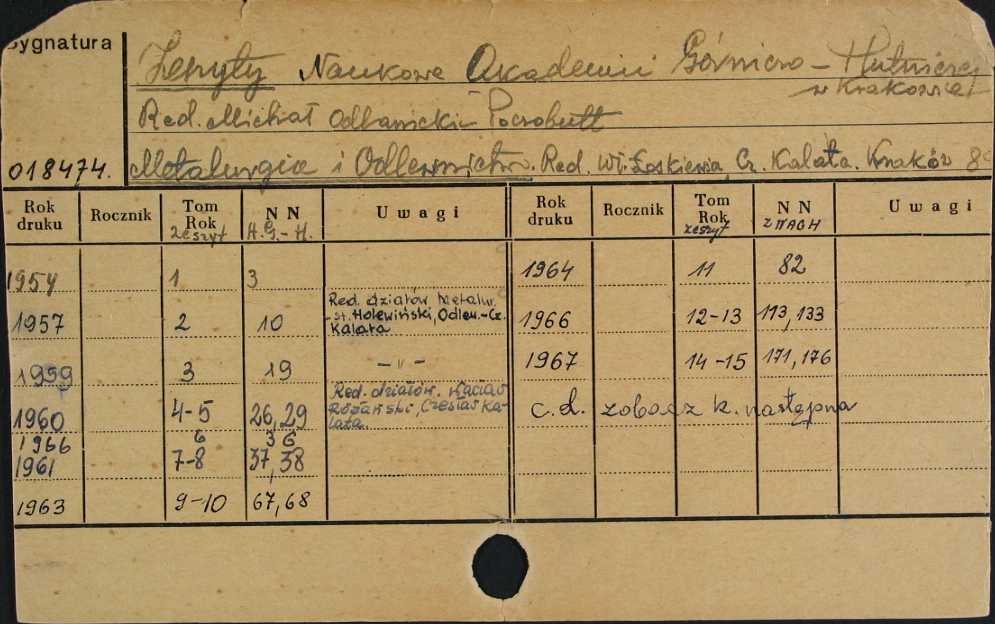 Sygnatura
Zeszyty Naukowe Akademii Górniczo - Hutniczej
w Krakowie
Red. Michał Odlanicki - Poczobutt
018474.
Metalurgia i Odlewnictwo. Red. Wł. Łoskiewia, Cz. Kalata. Kraków 8°
Rok druku Rocznik Tom Rok zeszyt N N A.G.-H. Uwagi Rok druku Rocznik Tom Rok zeszyt N N Z N AGH Uwagi
1954 1 3 1964 11 82
1957 2 10 Red. działów Metalur. - st. Holewiński, Odlew.-Cz. Kalata 1966 12-13 113, 133
1959 3 19 - " - 1967 14-15 171, 176
1960 4-5 26, 29 Red. działów. Wacław Różański, Czesław Kalata. c.d. zobacz k. następna
1966 6 36
1961 7-8 37, 38
1963 9-10 67, 68